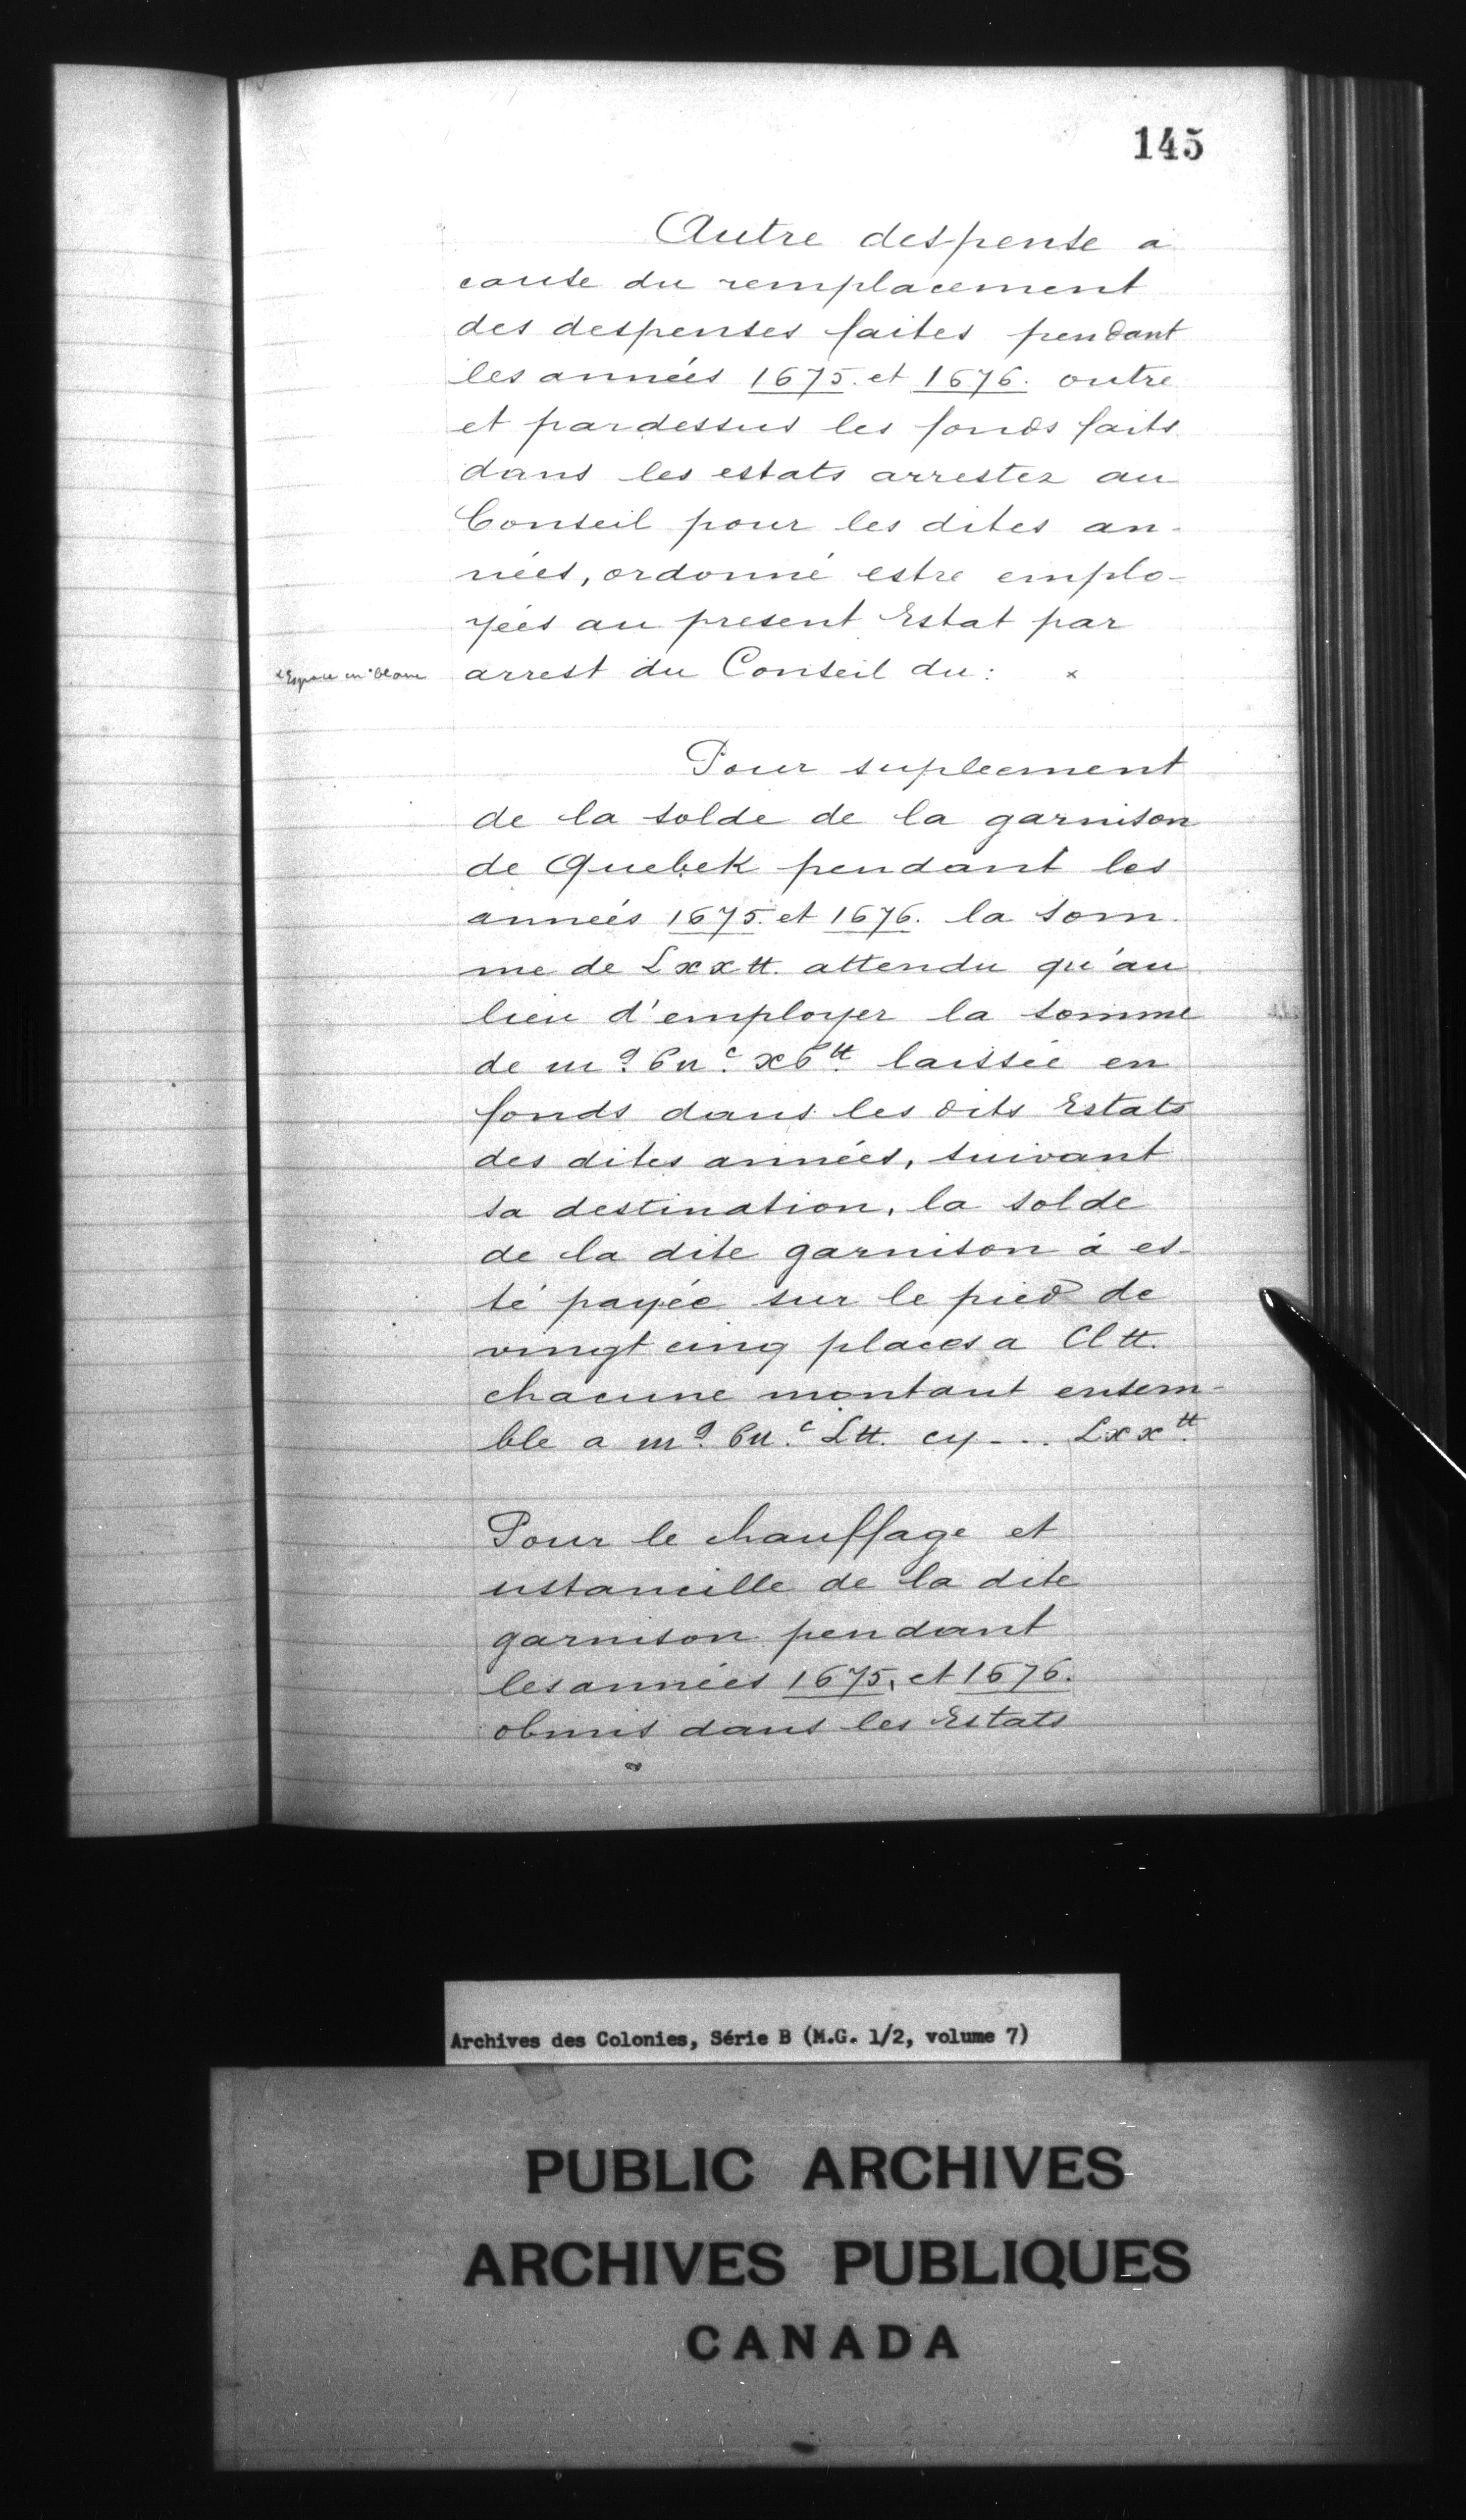 145
Autre despense a
cause du remplacement
des despenses faites pendant
les années 1675. et 1676. outre
et pardessus les fonds faits
dans les estats arrestez au
Conseil pour les dites an-
nées, ordonné estre emplo-
yées au present Estat par
x Espace en blanc arrest du Conseil du: x
Pour supleement
de la solde de la garnison
de Quebek pendant les
années 1675. et 1676. la som-
me de Lxx tt. attendu qu'au
lieu d'employer la somme
de laissée en
fonds dans les dits Estats
des dites années, suivant
sa destination, la solde
de la dite garnison à es-
té payée sur le pied de
vingt cinq places a Cl tt.
chacune montant ensem-
ble a cy --.. Lxx tt.
Pour le chauffage et
ustancille de la dite
garnison pendant
les années 1675, et 1676.
obmis dans les Estats
Archives des Colonies, Série B (M.G. 1/2, volume 7)
PUBLIC ARCHIVES
ARCHIVES PUBLIQUES
CANADA